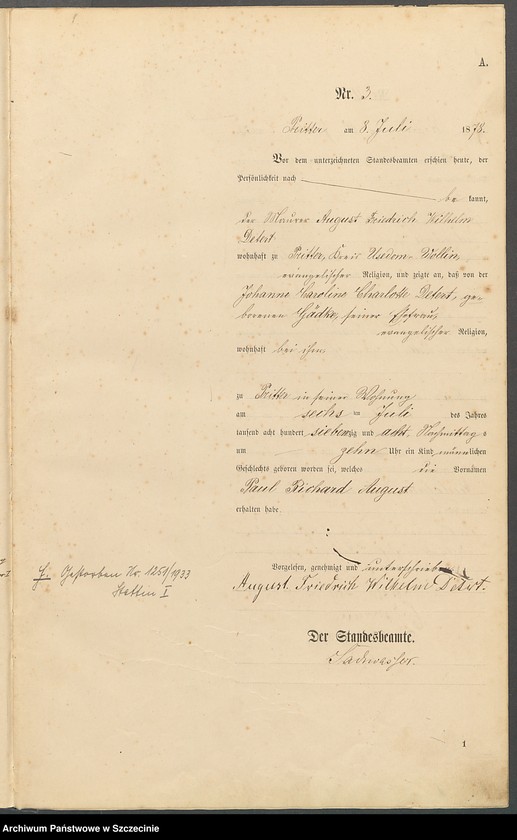 A.
Nr. 3.
Pritter am 8. Juli 1878.
Vor dem unterzeichneten Standesbeamten erschien heute, der
Persönlichkeit nach
be kannt,
der Maurer August Friedrich Wilhelm
Detert
wohnhaft zu Pritter, Kreis Usedom-Wollin,
evangelischer Religion, und zeigte an, daß von der
Johanne Caroline Charlotte Detert, ge-
borenen Gädke, seiner Ehefrau,
evangelischer Religion,
wohnhaft bei ihm,
zu Pritter in seiner Wohnung
am sechs ten Juli des Jahres
tausend acht hundert siebenzig und acht, Nachmittag s
um zehn Uhr ein Kind männlichen
Geschlechts geboren worden sei, welches die Vornamen
Paul Richard August
erhalten habe.
Vorgelesen, genehmigt und unterschrieben
August Friedrich Wilhelm Detert.
Gestorben Nr. 1251/1933
Stettin I
Der Standesbeamte.
1
Archiwum Państwowe w Szczecinie